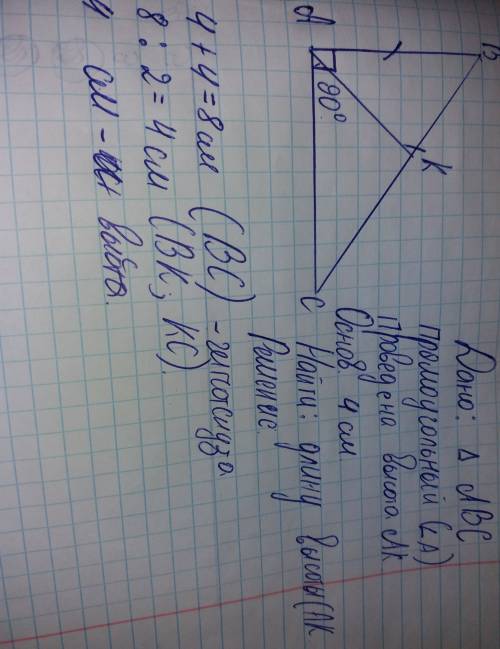 Дано: Δ ABC
прямоугольный (∠A)
Проведена высота AK
Основ 4 см.
Найти: длину высоты (AK
Решение.
B
K
A
90°
C
4 + 4 = 8 см (BC) - гипотенуза
8 : 2 = 4 см (BK; KC).
4 см - высота.